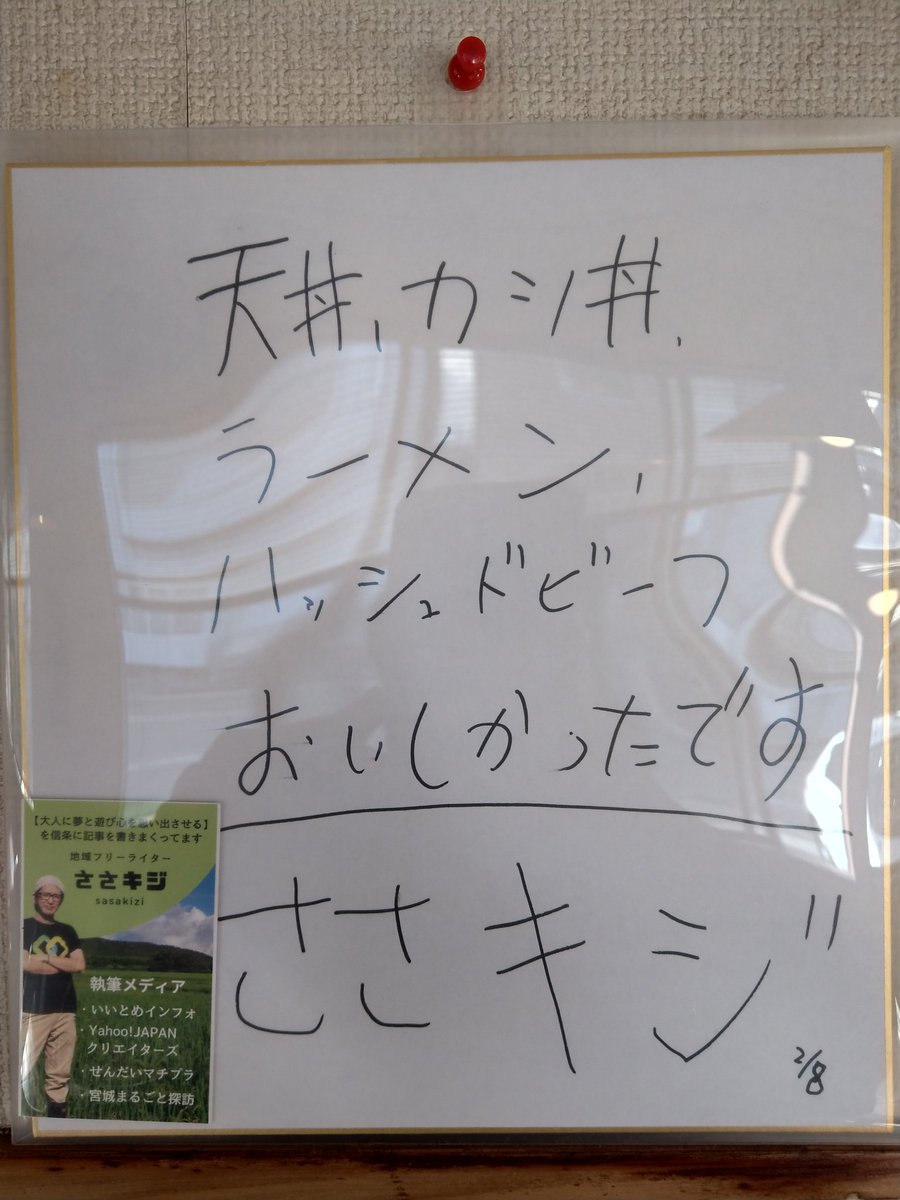 天丼、カシ丼、
ラーメン、
ハッシュドビーフ
おいしかったです
ささキジ
2/8
【大人に夢と遊び心を思い出させる】
を信条に記事を書きまくってます
地域フリーライター
ささキジ
sasakizi
執筆メディア
・いいとめインフォ
・Yahoo!JAPAN
クリエイターズ
・せんだいマチプラ
・宮城まるごと探訪